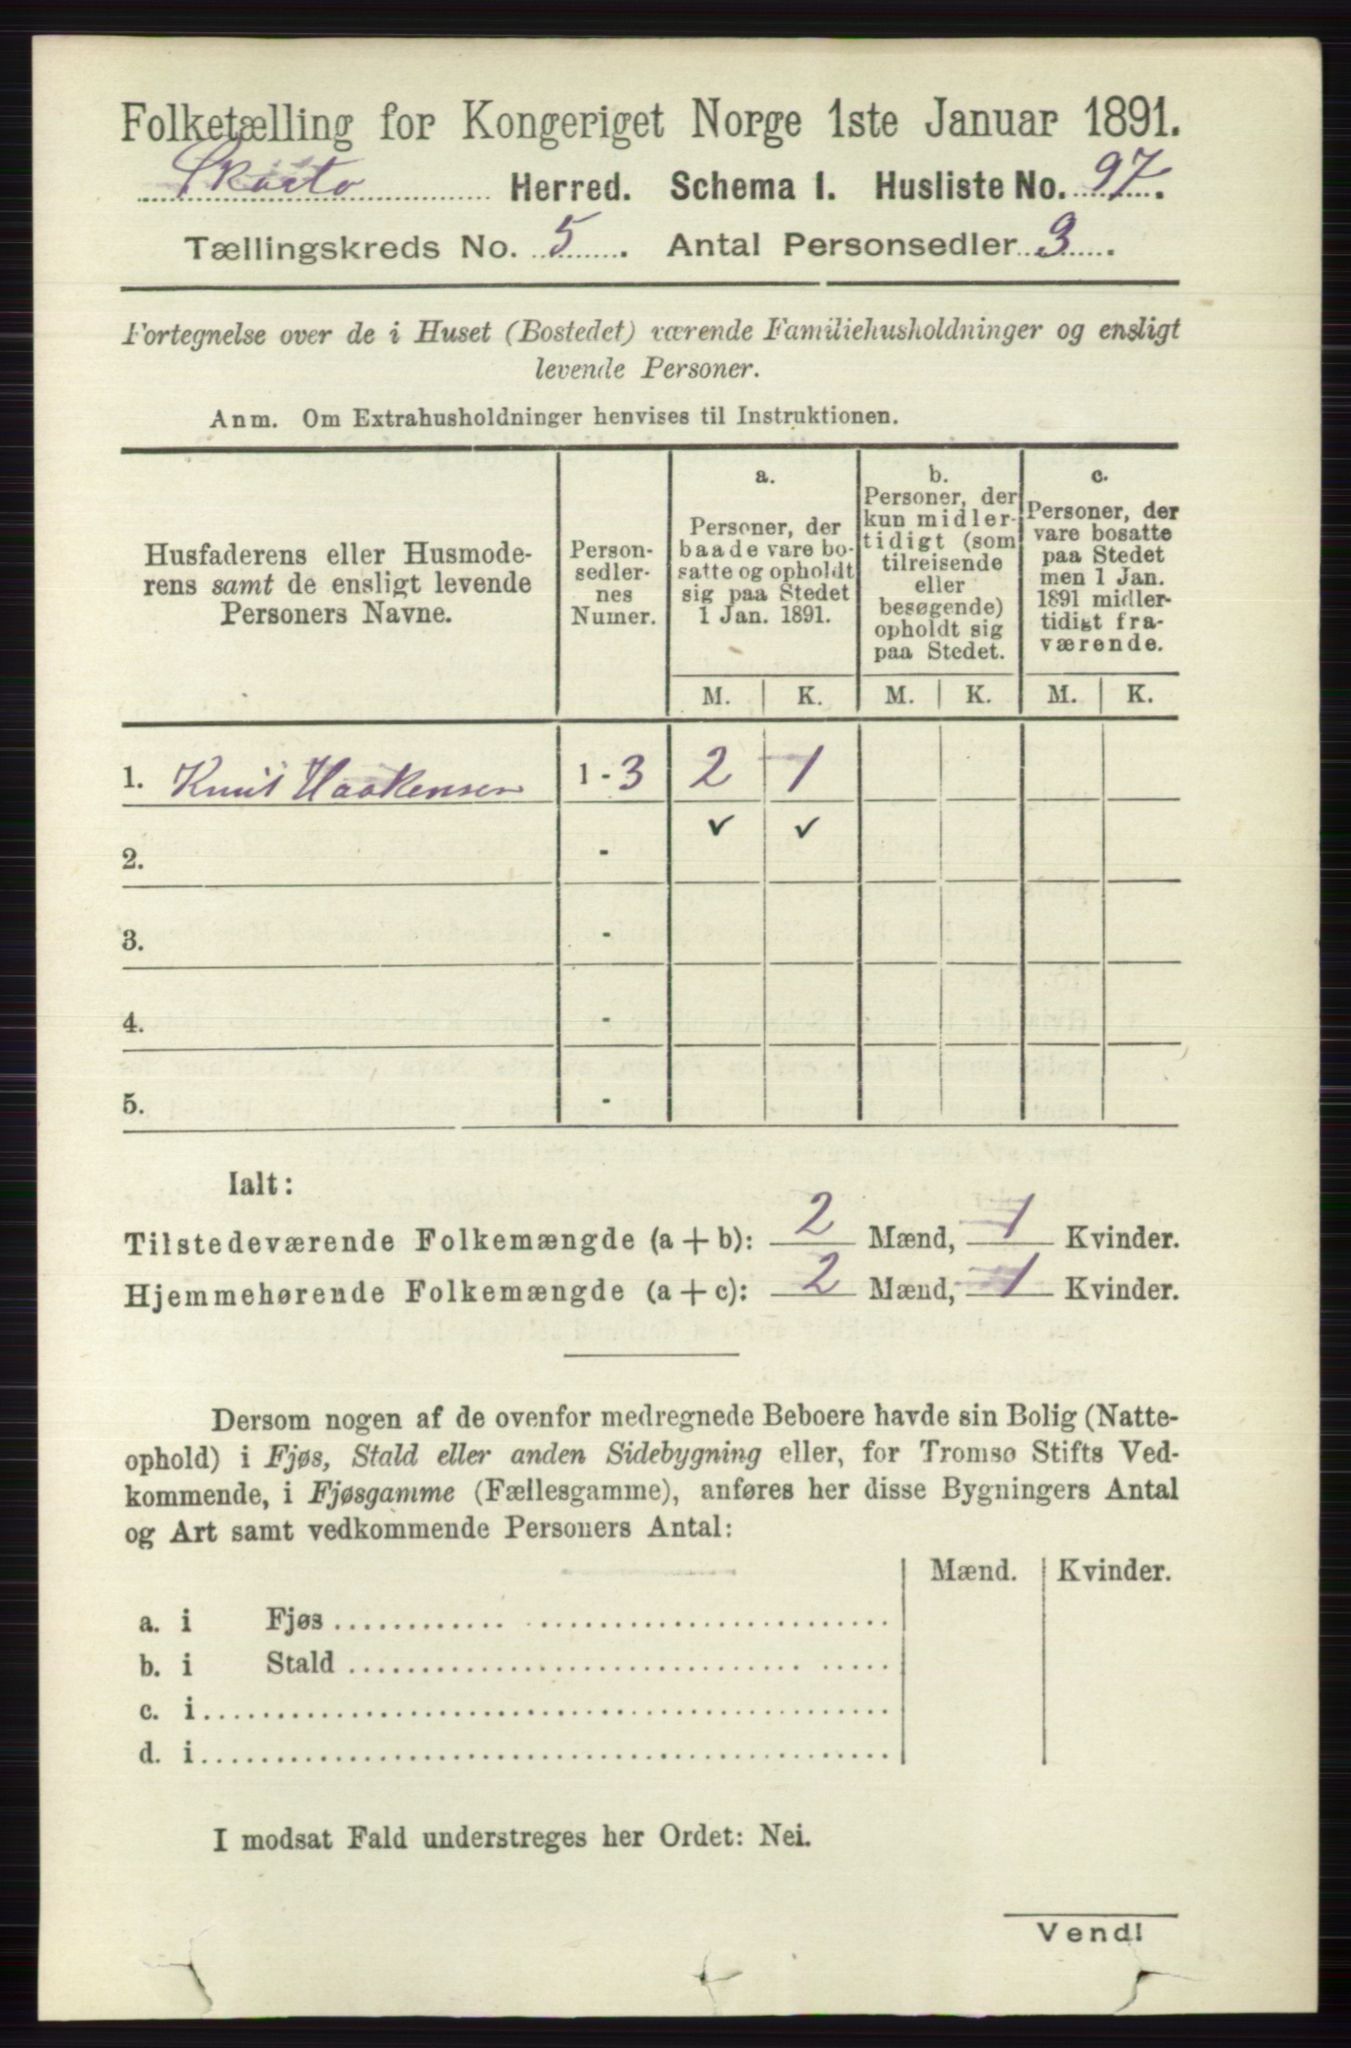 Folketælling for Kongeriget Norge 1ste Januar 1891.
Skaato Herred. Schema 1. Husliste No. 97.
Tællingskreds No. 5. Antal Personsedler 3.
Fortegnelse over de i Huset (Bostedet) værende Familiehusholdninger og ensligt
levende Personer.
Anm. Om Extrahusholdninger henvises til Instruktionen.
Husfaderens eller Husmode-
rens samt de ensligt levende
Personers Navne.
Person-
sedler-
nes
Numer.
a.
Personer, der
baade vare bo-
satte og opholdt
sig paa Stedet
1 Jan. 1891.
b.
Personer, der
kun midler-
tidigt (som
tilreisende
eller
besøgende)
opholdt sig
paa Stedet.
c.
Personer, der
vare bosatte
paa Stedet
men 1 Jan.
1891 midler-
tidigt fra-
værende.
M. K. M. K. M. K.
1. Knut Haakensen 1 - 3 2 1
✓ ✓
2. -
3. -
4. -
5. -
Ialt:
Tilstedeværende Folkemængde (a + b): 2 Mænd, 1 Kvinder.
Hjemmehørende Folkemængde (a + c): 2 Mænd, 1 Kvinder.
Dersom nogen af de ovenfor medregnede Beboere havde sin Bolig (Natte-
ophold) i Fjøs, Stald eller anden Sidebygning eller, for Tromsø Stifts Ved-
kommende, i Fjøsgamme (Fællesgamme), anføres her disse Bygningers Antal
og Art samt vedkommende Personers Antal:
Mænd. Kvinder.
a. i Fjøs
b. i Stald
c. i
d. i
I modsat Fald understreges her Ordet: Nei.
Vend!